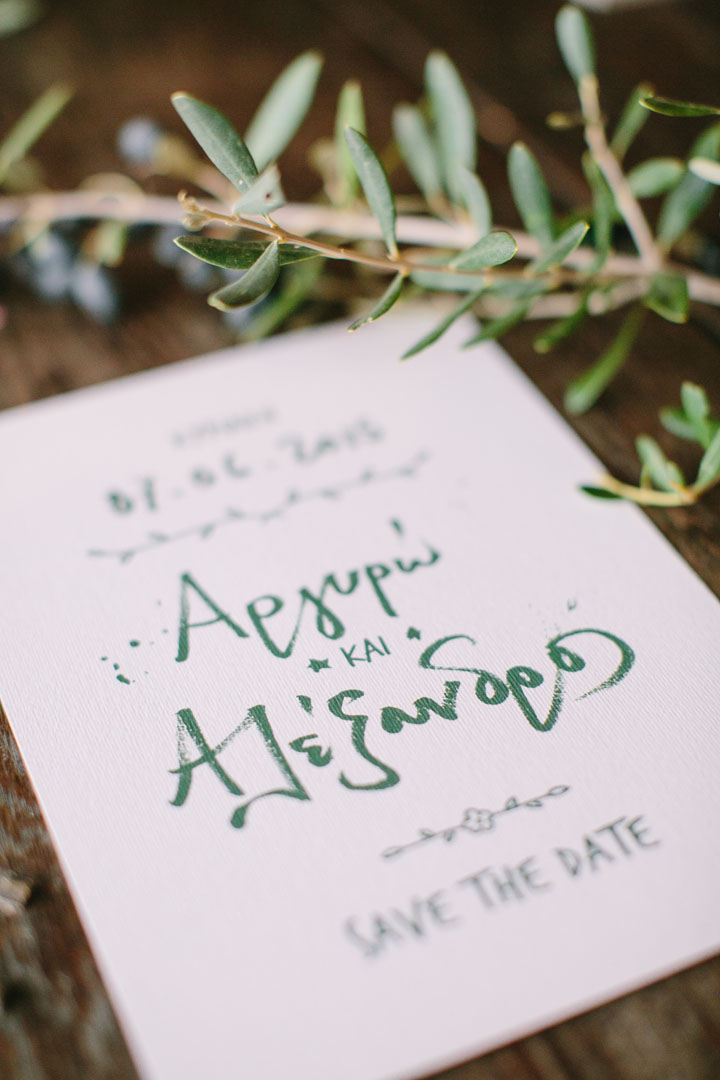 07.06.2015
Αργυρώ
ΚΑΙ
Αλέξανδρο
SAVE THE DATE